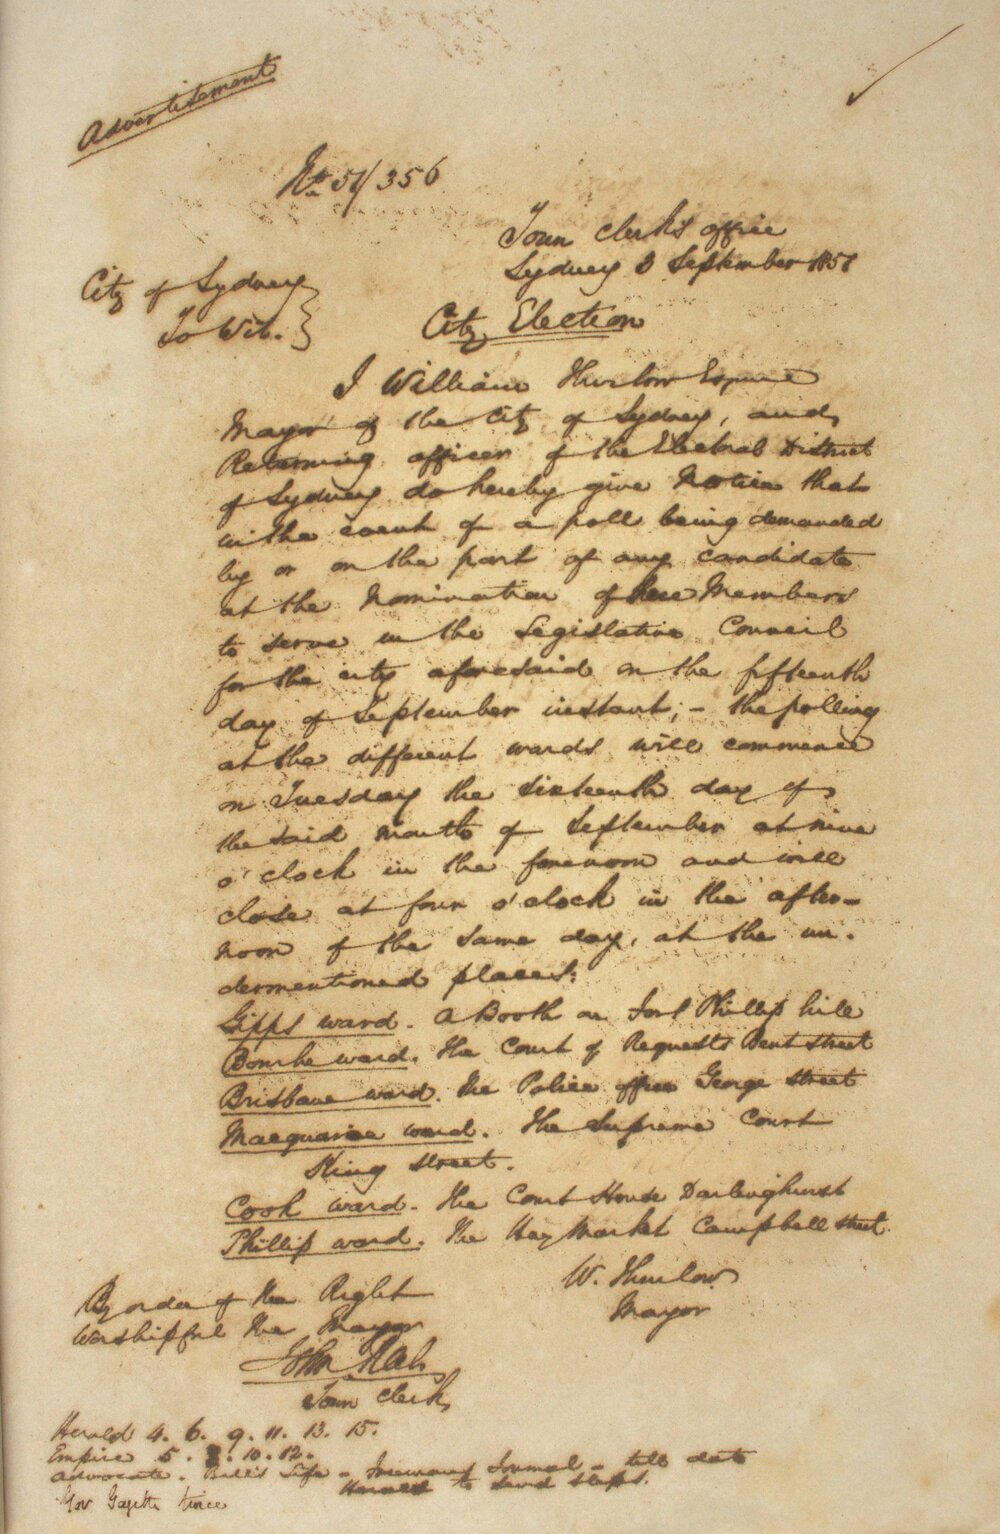 Advertisement
No 51/356
Town Clerk's office
Sydney 3 September 1851
City of Sydney
To Wit.
City Election
I William Thurlow Esquire
Mayor of the City of Sydney, and
Returning officer of the Electoral District
of Sydney do hereby give Notice that
in the event of a poll being demanded
by or on the part of any candidate
at the Nomination of three Members
to serve in the Legislative Council
for the city aforesaid on the fifteenth
day of September instant; - the polling
at the different wards will commence
on Tuesday the sixteenth day of
the said month of September at nine
o'clock in the forenoon and will
close at four o'clock in the after-
noon of the same day, at the un-
dermentioned places:
Gipps ward. A Booth on Fort Phillip hill
Bourke ward. The Court of Requests Bent street
Brisbane ward. The Police office George street
Macquarie ward. The Supreme Court
King street.
Cook ward. The Court House Darlinghurst
Phillip ward. The Hay Market Campbell street
W. Thurlow
Mayor
By order of the Right
Worshipful the Mayor
John Rae
Town Clerk
Herald 4. 6. 9. 11. 13. 15.
Empire 5. 8. 10. 12.
Advocate. Bell's Life - Journal - till date
to send slips.
Gov Gazette twice